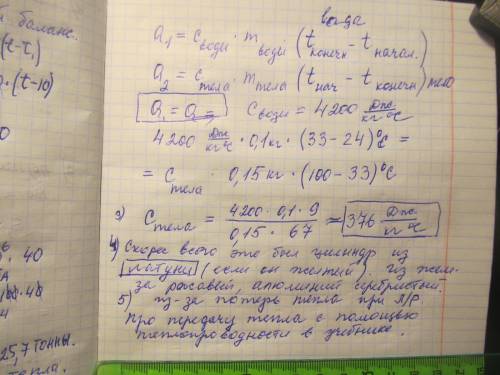 й баланс.
(t-t₁)
·(t-10)
0
6
, 40
25,7 тонны.
тепла.
вода
Q₁ = Cводы · mводы (tконечн - tначал.)
Q₂ = Cтела · mтела (tнач - tконечн) тело
Q₁ = Q₂ = Cводы = 4200 Дж/кг°C
4200 Дж/кг°C · 0,1кг · (33-24)°C =
= Cтела · 0,15 кг · (100-33)°C
3) Cтела = 4200·0,1·9 / 0,15·67 ≈ 376 Дж/кг°C
4) Скорее всего это был цилиндр из
латуни (если он желтый). Из желе-
за ржавый, алюминий серебристый.
5) Из-за потерь тепла при Л/Р.
Про передачу тепла с помощью
теплопроводности в учебнике.